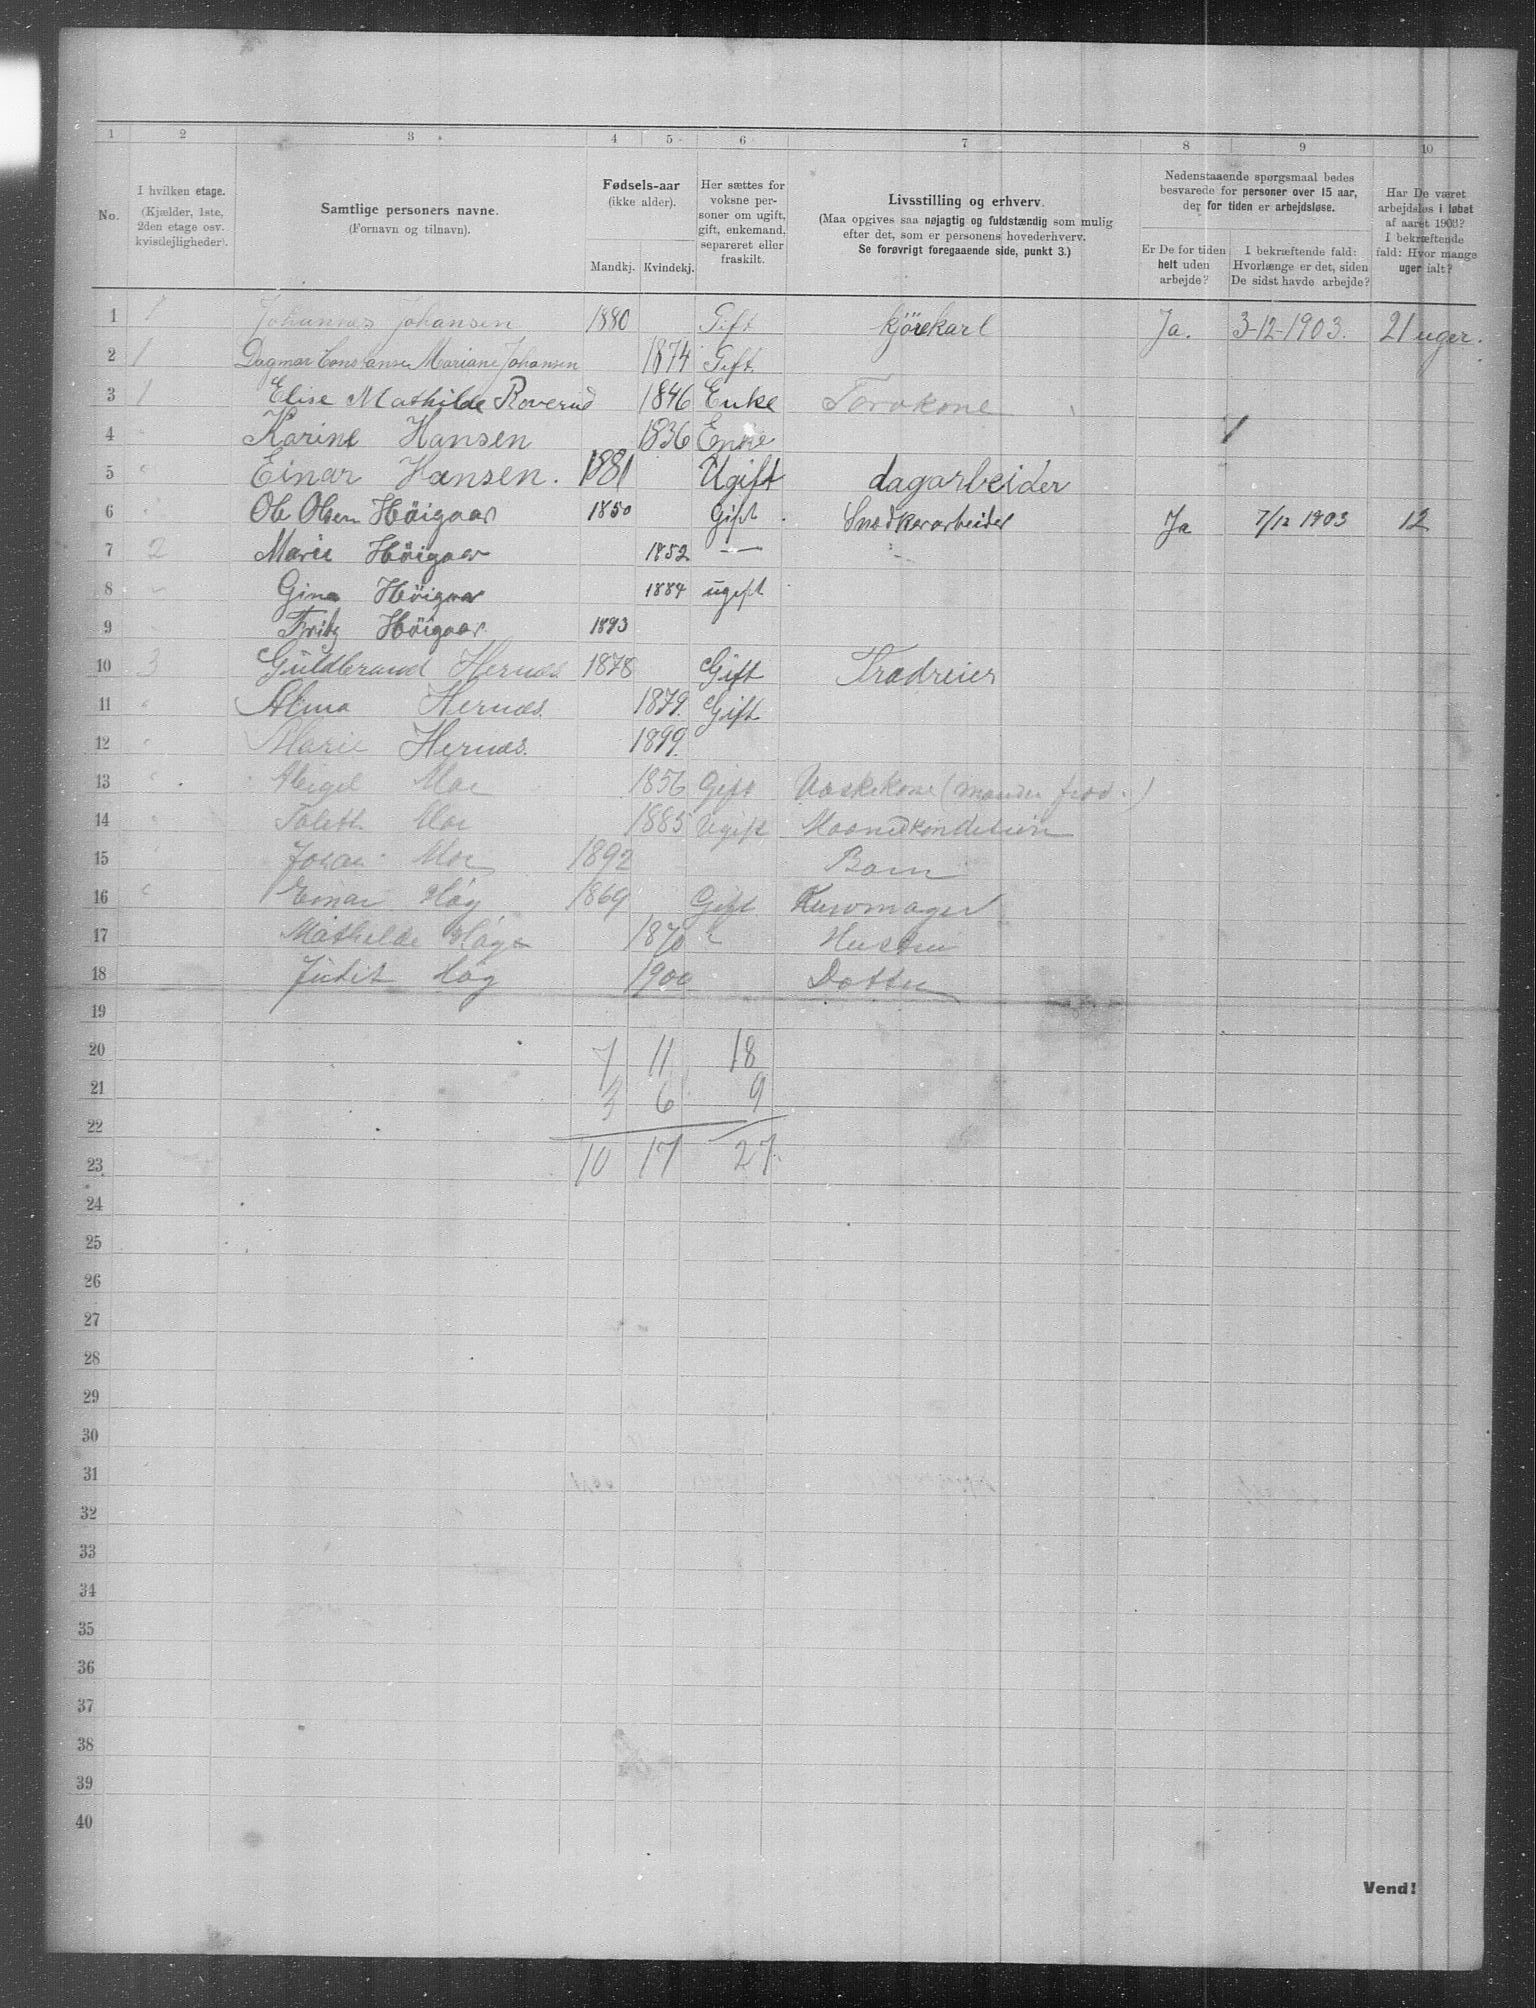 1 2 3 4 5 6 7 8 9 10
No.
I hvilken etage.
(Kjælder, 1ste,
2den etage osv.
kvistlejligheder).
Samtlige personers navne.
(Fornavn og tilnavn).
Fødsels-aar
(ikke alder).
Mandkj. Kvindekj.
Her sættes for
voksne per-
soner om ugift,
gift, enkemand,
separeret eller
fraskilt.
Livsstilling og erhverv.
(Maa opgives saa nøjagtig og fuldstændig som mulig
efter det, som er personens hovederhverv.
Se forøvrigt foregaaende side, punkt 3.)
Nedenstaaende spørgsmaal bedes
besvarede for personer over 15 aar,
der for tiden er arbejdsløse.
Er De for tiden
helt uden
arbejde?
I bekræftende fald:
Hvorlænge er det, siden
De sidst havde arbejde?
Har De været
arbejdsløs i løbet
af aaret 1903?
I bekræftende
fald: Hvor mange
uger ialt?
1 1 Johannes Johansen 1880 Gift kjörekarl Ja. 3-12-1903. 21 uger.
2 1 Dagmar Constanse Mariane Johansen 1874 Gift.
3 1 Elise Mathilde Roverud 1846 Enke Torvkone
4 " Karine Hansen 1836 Enke
5 " Einar Hansen. 1881 Ugift dagarbeider
6 " Ole Olsen Höigaar 1850 Gift Snedkerarbeider Ja 7/12 1903 12
7 2 Marie Höigaar 1852 —
8 " Gina Höigaar 1884 ugift
9 " Fritz Höigaar 1893
10 3 Guldbrand Hernæs 1878 Gift
11 " Alma Hernæs. 1879 Gift
12 " Marie Hernæs. 1899
13 " Moe 1856 Gift Vaskekone (
14 " Moe 1885 Ugift
15 " Johan Moe 1892 Barn
16 " Einar Høg 1869 Gift
17 Mathilde Høg 1870 " Hustru
18 Judit Høg 1900 Datter
19
20 7 11 18
21 3 6 9
22
23 10 17 27.
24
25
26
27
28
29
30
31
32
33
34
35
36
37
38
39
40
Vend!